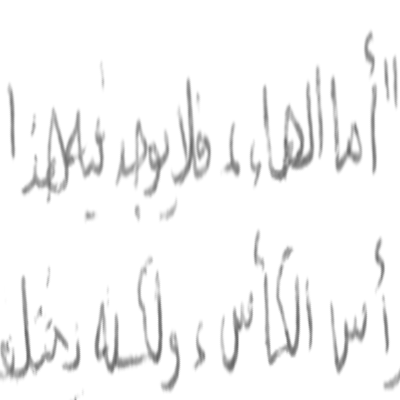 "أما الهاء، فلا يوجد فيها هذا
رأس الكأس، ولكنه يمثل